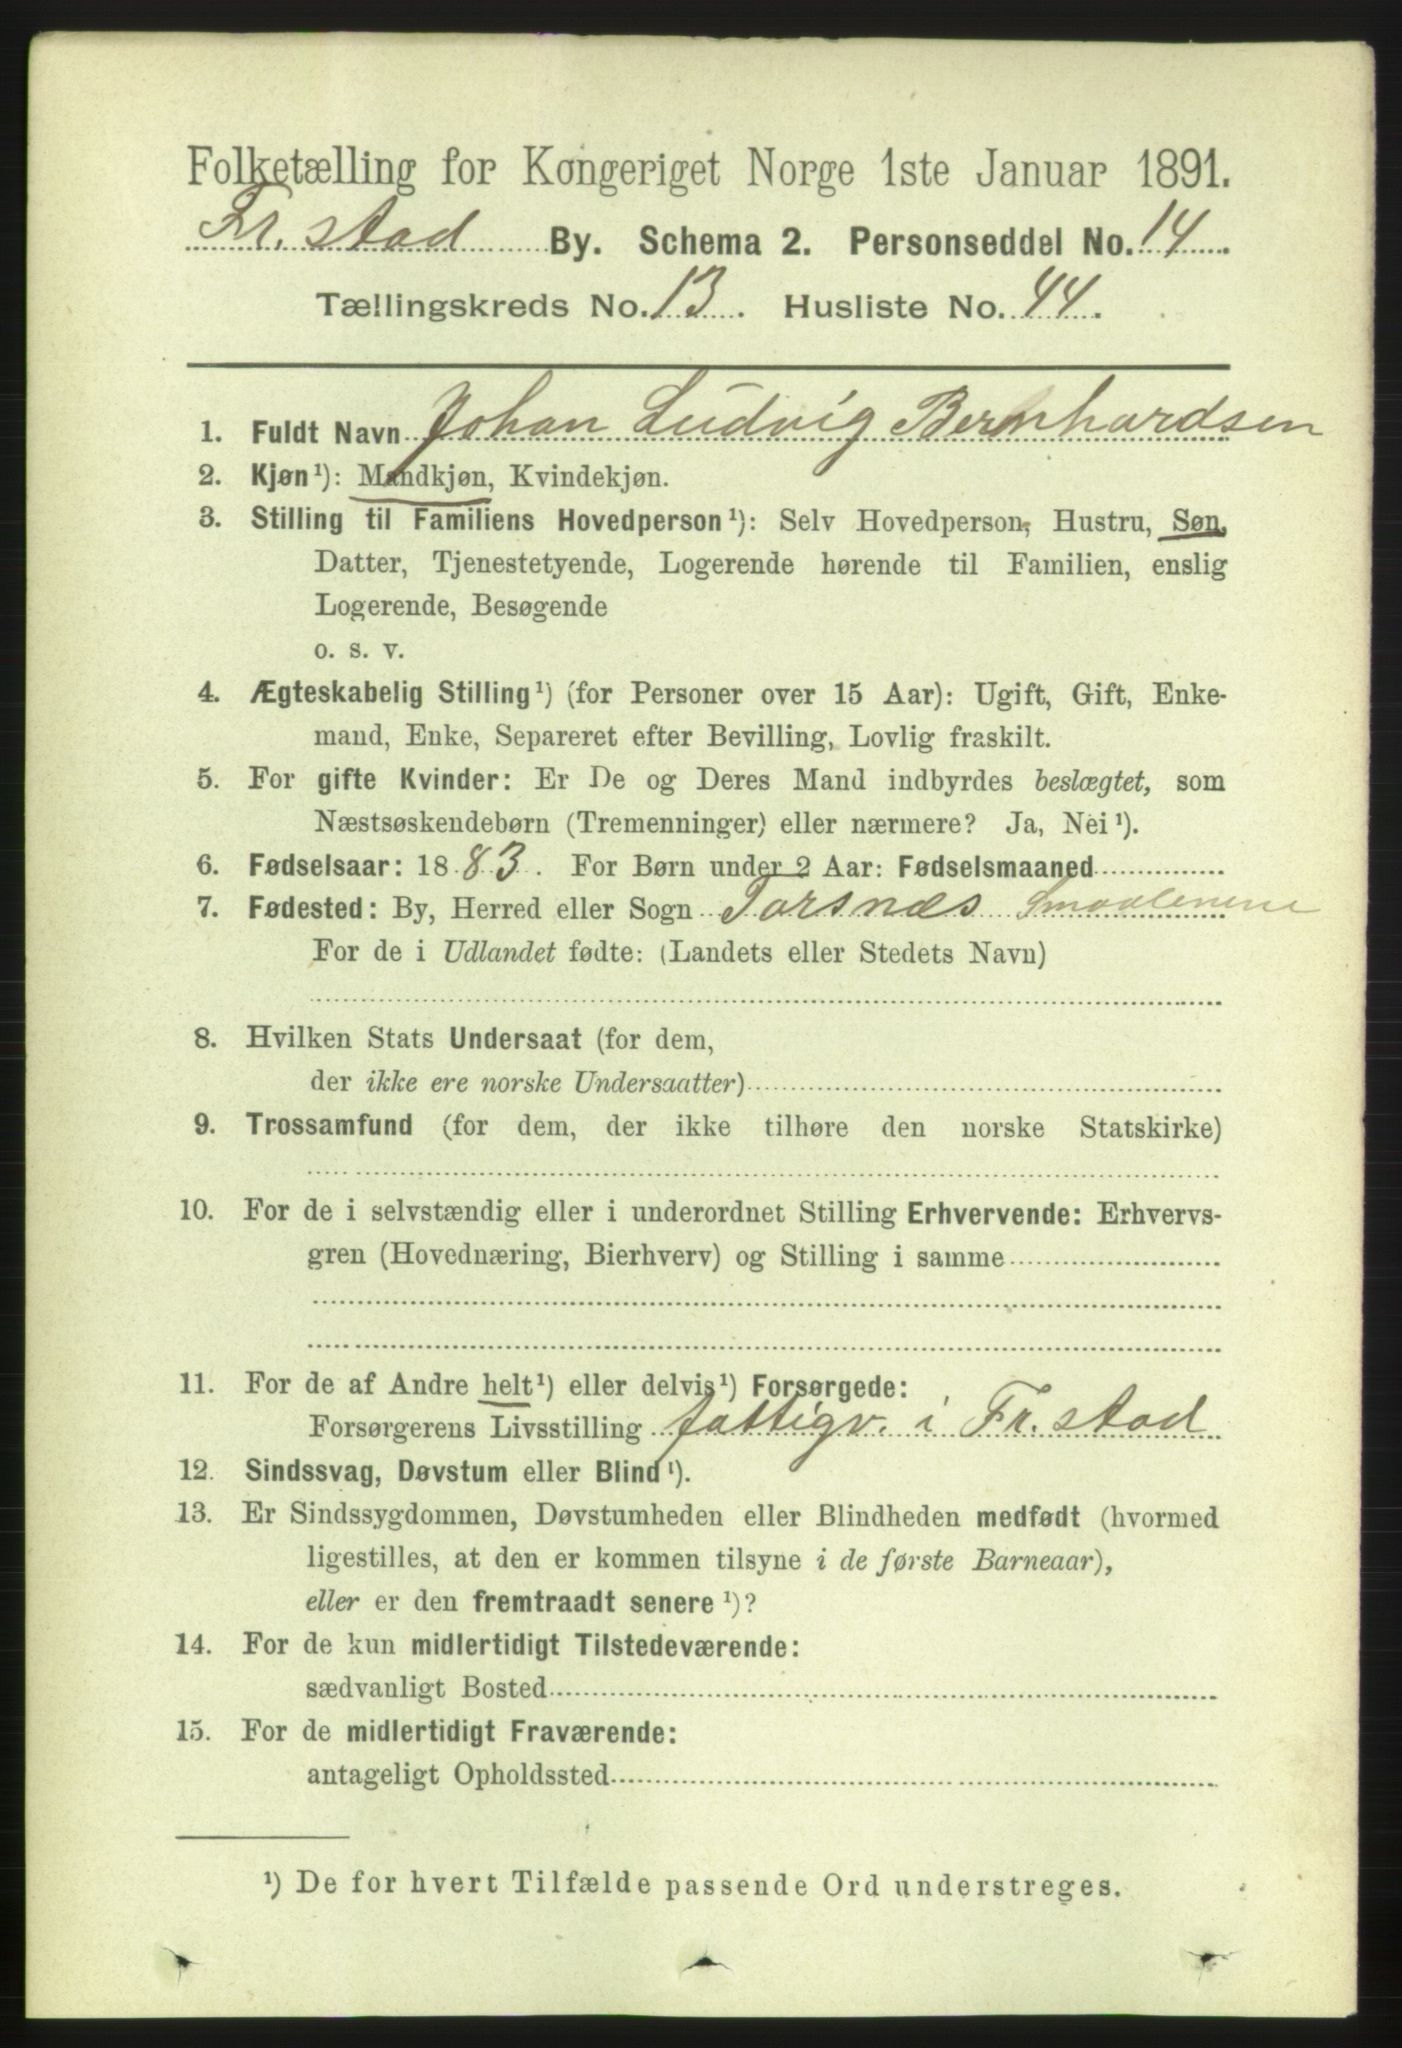 Folketælling for Kongeriget Norge 1ste Januar 1891.
Fr. stad By. Schema 2. Personseddel No. 14
Tællingskreds No. 13. Husliste No. 44.
1. Fuldt Navn Johan Ludvig Bernhardsen
2. Kjøn¹): Mandkjøn, Kvindekjøn.
3. Stilling til Familiens Hovedperson¹): Selv Hovedperson, Hustru, Søn,
Datter, Tjenestetyende, Logerende hørende til Familien, enslig
Logerende, Besøgende
o. s. v.
4. Ægteskabelig Stilling¹) (for Personer over 15 Aar): Ugift, Gift, Enke-
mand, Enke, Separeret efter Bevilling, Lovlig fraskilt.
5. For gifte Kvinder: Er De og Deres Mand indbyrdes beslægtet, som
Næstsøskendebørn (Tremenninger) eller nærmere? Ja, Nei¹).
6. Fødselsaar: 1883. For Børn under 2 Aar: Fødselsmaaned
7. Fødested: By, Herred eller Sogn Torsnæs Smaalenene
For de i Udlandet fødte: (Landets eller Stedets Navn)
8. Hvilken Stats Undersaat (for dem,
der ikke ere norske Undersaatter)
9. Trossamfund (for dem, der ikke tilhøre den norske Statskirke)
10. For de i selvstændig eller i underordnet Stilling Erhvervende: Erhvervs-
gren (Hovednæring, Bierhverv) og Stilling i samme
11. For de af Andre helt¹) eller delvis¹) Forsørgede:
Forsørgerens Livsstilling fattigv. i Fr. stad
12. Sindssvag, Døvstum eller Blind¹).
13. Er Sindssygdommen, Døvstumheden eller Blindheden medfødt (hvormed
ligestilles, at den er kommen tilsyne i de første Barneaar),
eller er den fremtraadt senere¹)?
14. For de kun midlertidigt Tilstedeværende:
sædvanligt Bosted
15. For de midlertidigt Fraværende:
antageligt Opholdssted
¹) De for hvert Tilfælde passende Ord understreges.